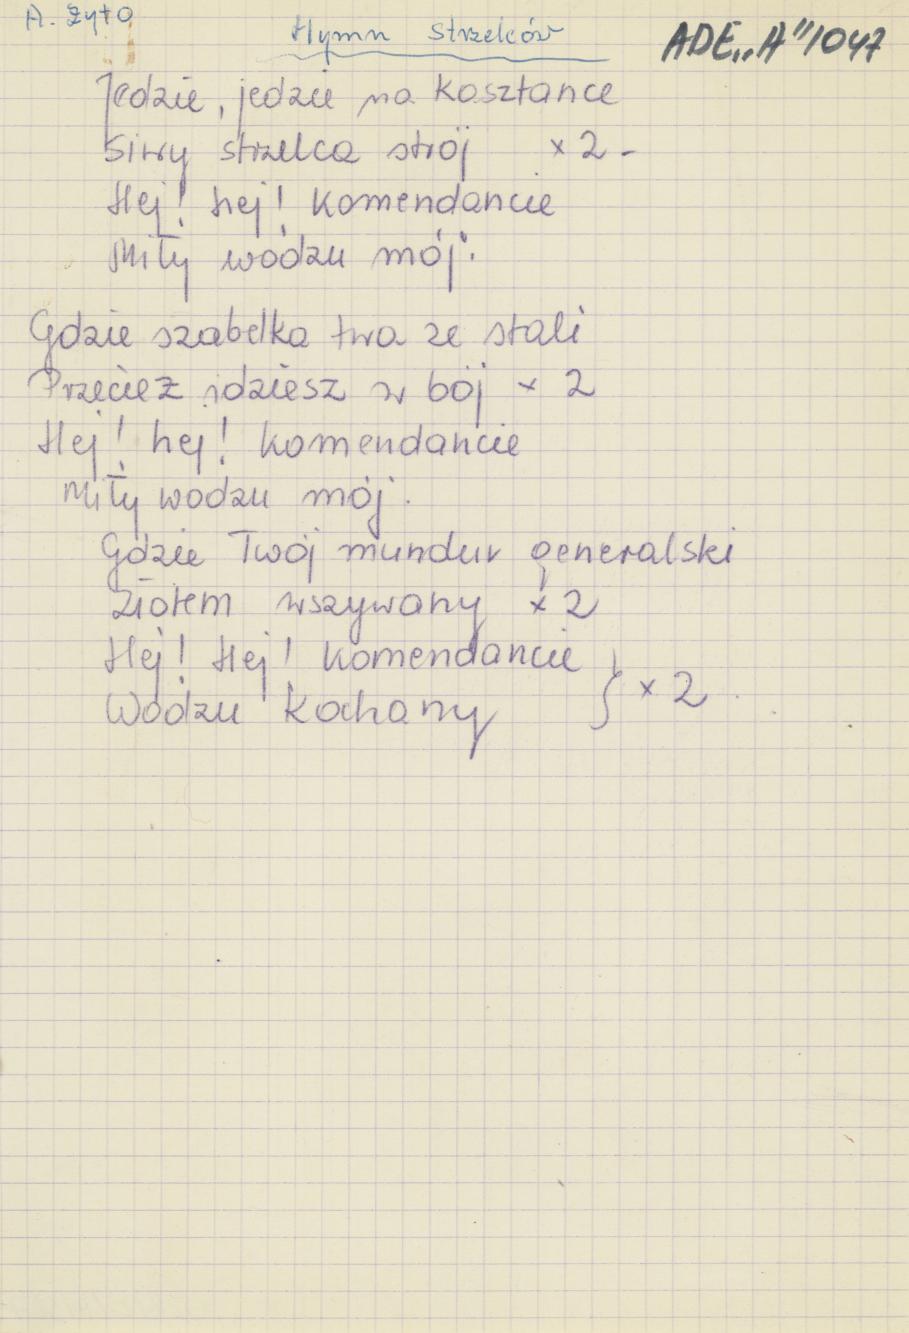 A. Żyto
Hymn Strzelców
ADE„A"1047
Jedzie, jedzie na Kosztance
Siwy strzelca strój x 2 -
Hej! hej! Komendancie
Miły wodzu mój.
Gdzie szabelka twa ze stali
Przecież idziesz w bój x 2
Hej! hej! Komendancie
Miły wodzu mój.
Gdzie Twój mundur generalski
Złotem wszywany x 2
Hej! Hej! Komendancie
Wodzu Kochany } x 2